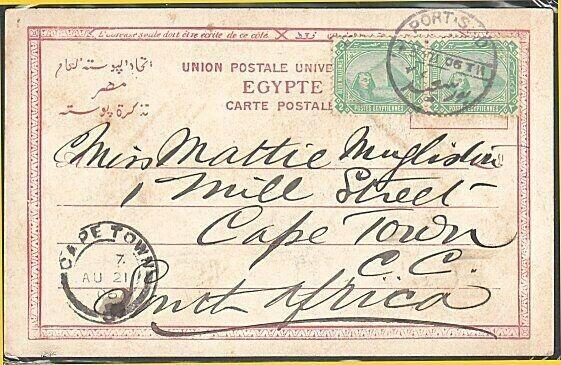 L'adresse seule doit être écrite de ce côté.
UNION POSTALE UNIVE
EGYPTE
CARTE POSTALE
اتحاد البوستة العام
مصر
تذكرة بوسته
PORT-SAID
POSTES EGYPTIENNES
POSTES EGYPTIENNES
Miss Mattie
1 Mill Street
Cape Town
C.C.
South Africa
CAPE TOWN
7
AU 21